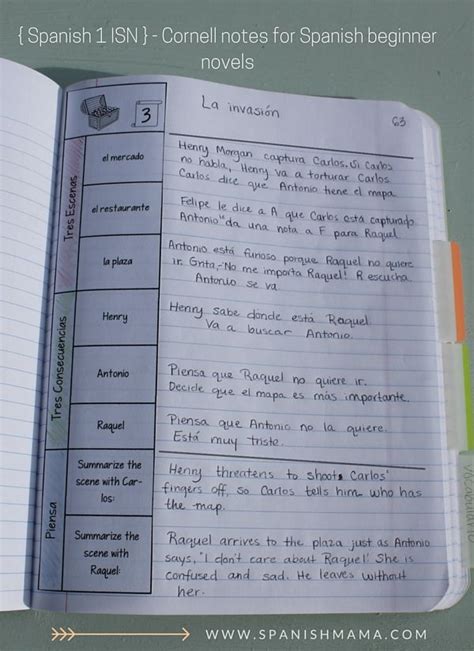 { Spanish 1 ISN } - Cornell notes for Spanish beginner
novels
3
La invasión
63
Tres Escenas
el mercado
Henry Morgan captura Carlos. Si Carlos
no habla, Henry va a torturar Carlos.
Carlos dice que Antonio tiene el mapa.
el restaurante
Felipe le dice a A que Carlos está capturado.
Antonio da una nota a F para Raquel
la plaza
Antonio está furioso porque Raquel no quiere
ir. Grita, - No me importa Raquel! R escucha
Antonio se va
Tres Consecuencias
Henry
Henry sabe donde está Raquel
Va a buscar Antonio.
Antonio
Piensa que Raquel no quiere ir.
Decide que el mapa es más importante.
Raquel
Piensa que Antonio no la quiere.
Está muy triste.
Piensa
Summarize the
scene with Car-
los:
Henry threatens to shoot Carlos'
fingers off, so Carlos tells him who has
the map.
Summarize the
scene with
Raquel:
Raquel arrives to the plaza just as Antonio
says, "I don't care about Raquel! She is
confused and sad. He leaves without
her.
WWW.SPANISHMAMA.COM